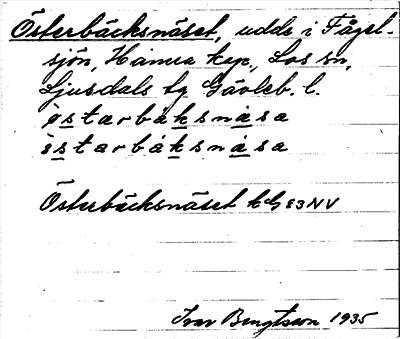 Österbäcksnäset, udde i Fågel-
sjön, Hamra kap., Los sn,
Ljusdals tg Gävleb. l.
östarbáksnása
östarbáksnása
Österbäcksnäset kG 83 NV
Ivar Bengtsson 1935